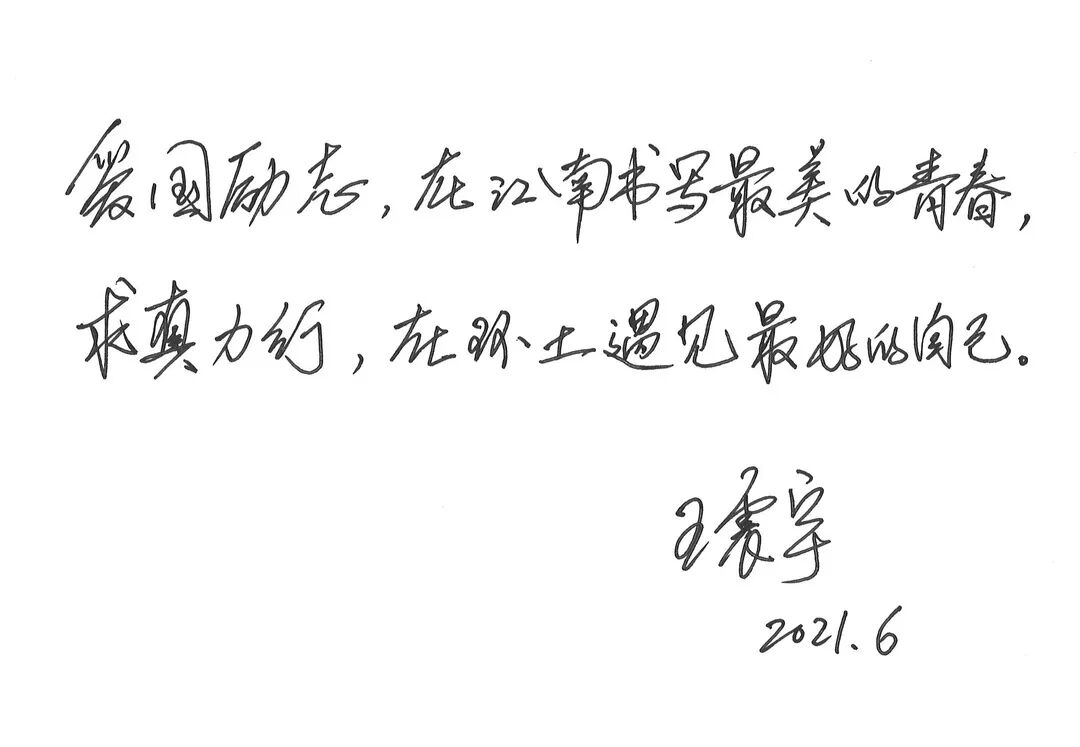 爱国励志,在江南书写最美的青春,
求真力行,在环土遇见最好的自己。
王震宇
2021.6